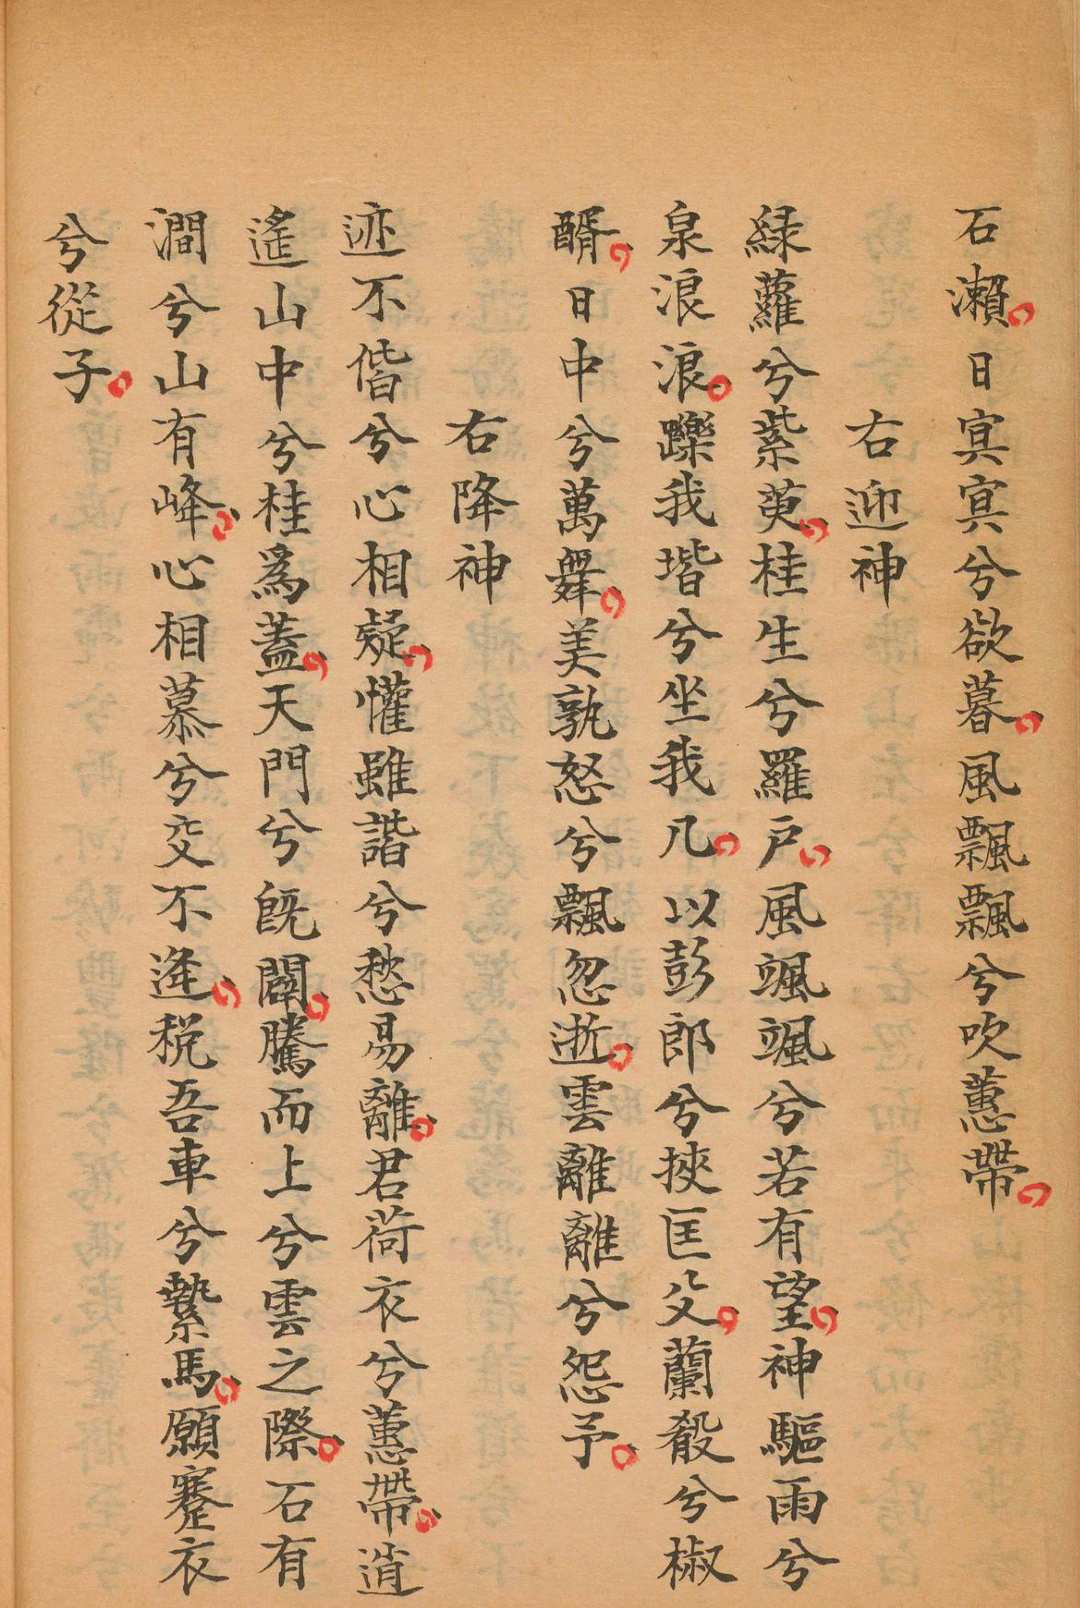 石瀨日冥冥兮欲暮風飄飄兮吹蕙帶
右迎神
綠蘿兮紫萸桂生兮羅戶風颯颯兮若有望神驅雨兮
泉浪浪躒我堦兮坐我几以彭郎兮挾匡父蘭殽兮椒
醑日中兮萬舞美孰怒兮飄忽逝雲離離兮怨予
右降神
迹不偕兮心相疑懽雖諧兮愁易離君荷衣兮蕙帶逍
遙山中兮桂爲蓋天門兮旣闢騰而上兮雲之際石有
澗兮山有峰心相慕兮交不逢稅吾車兮縶馬願蹇衣
兮從子